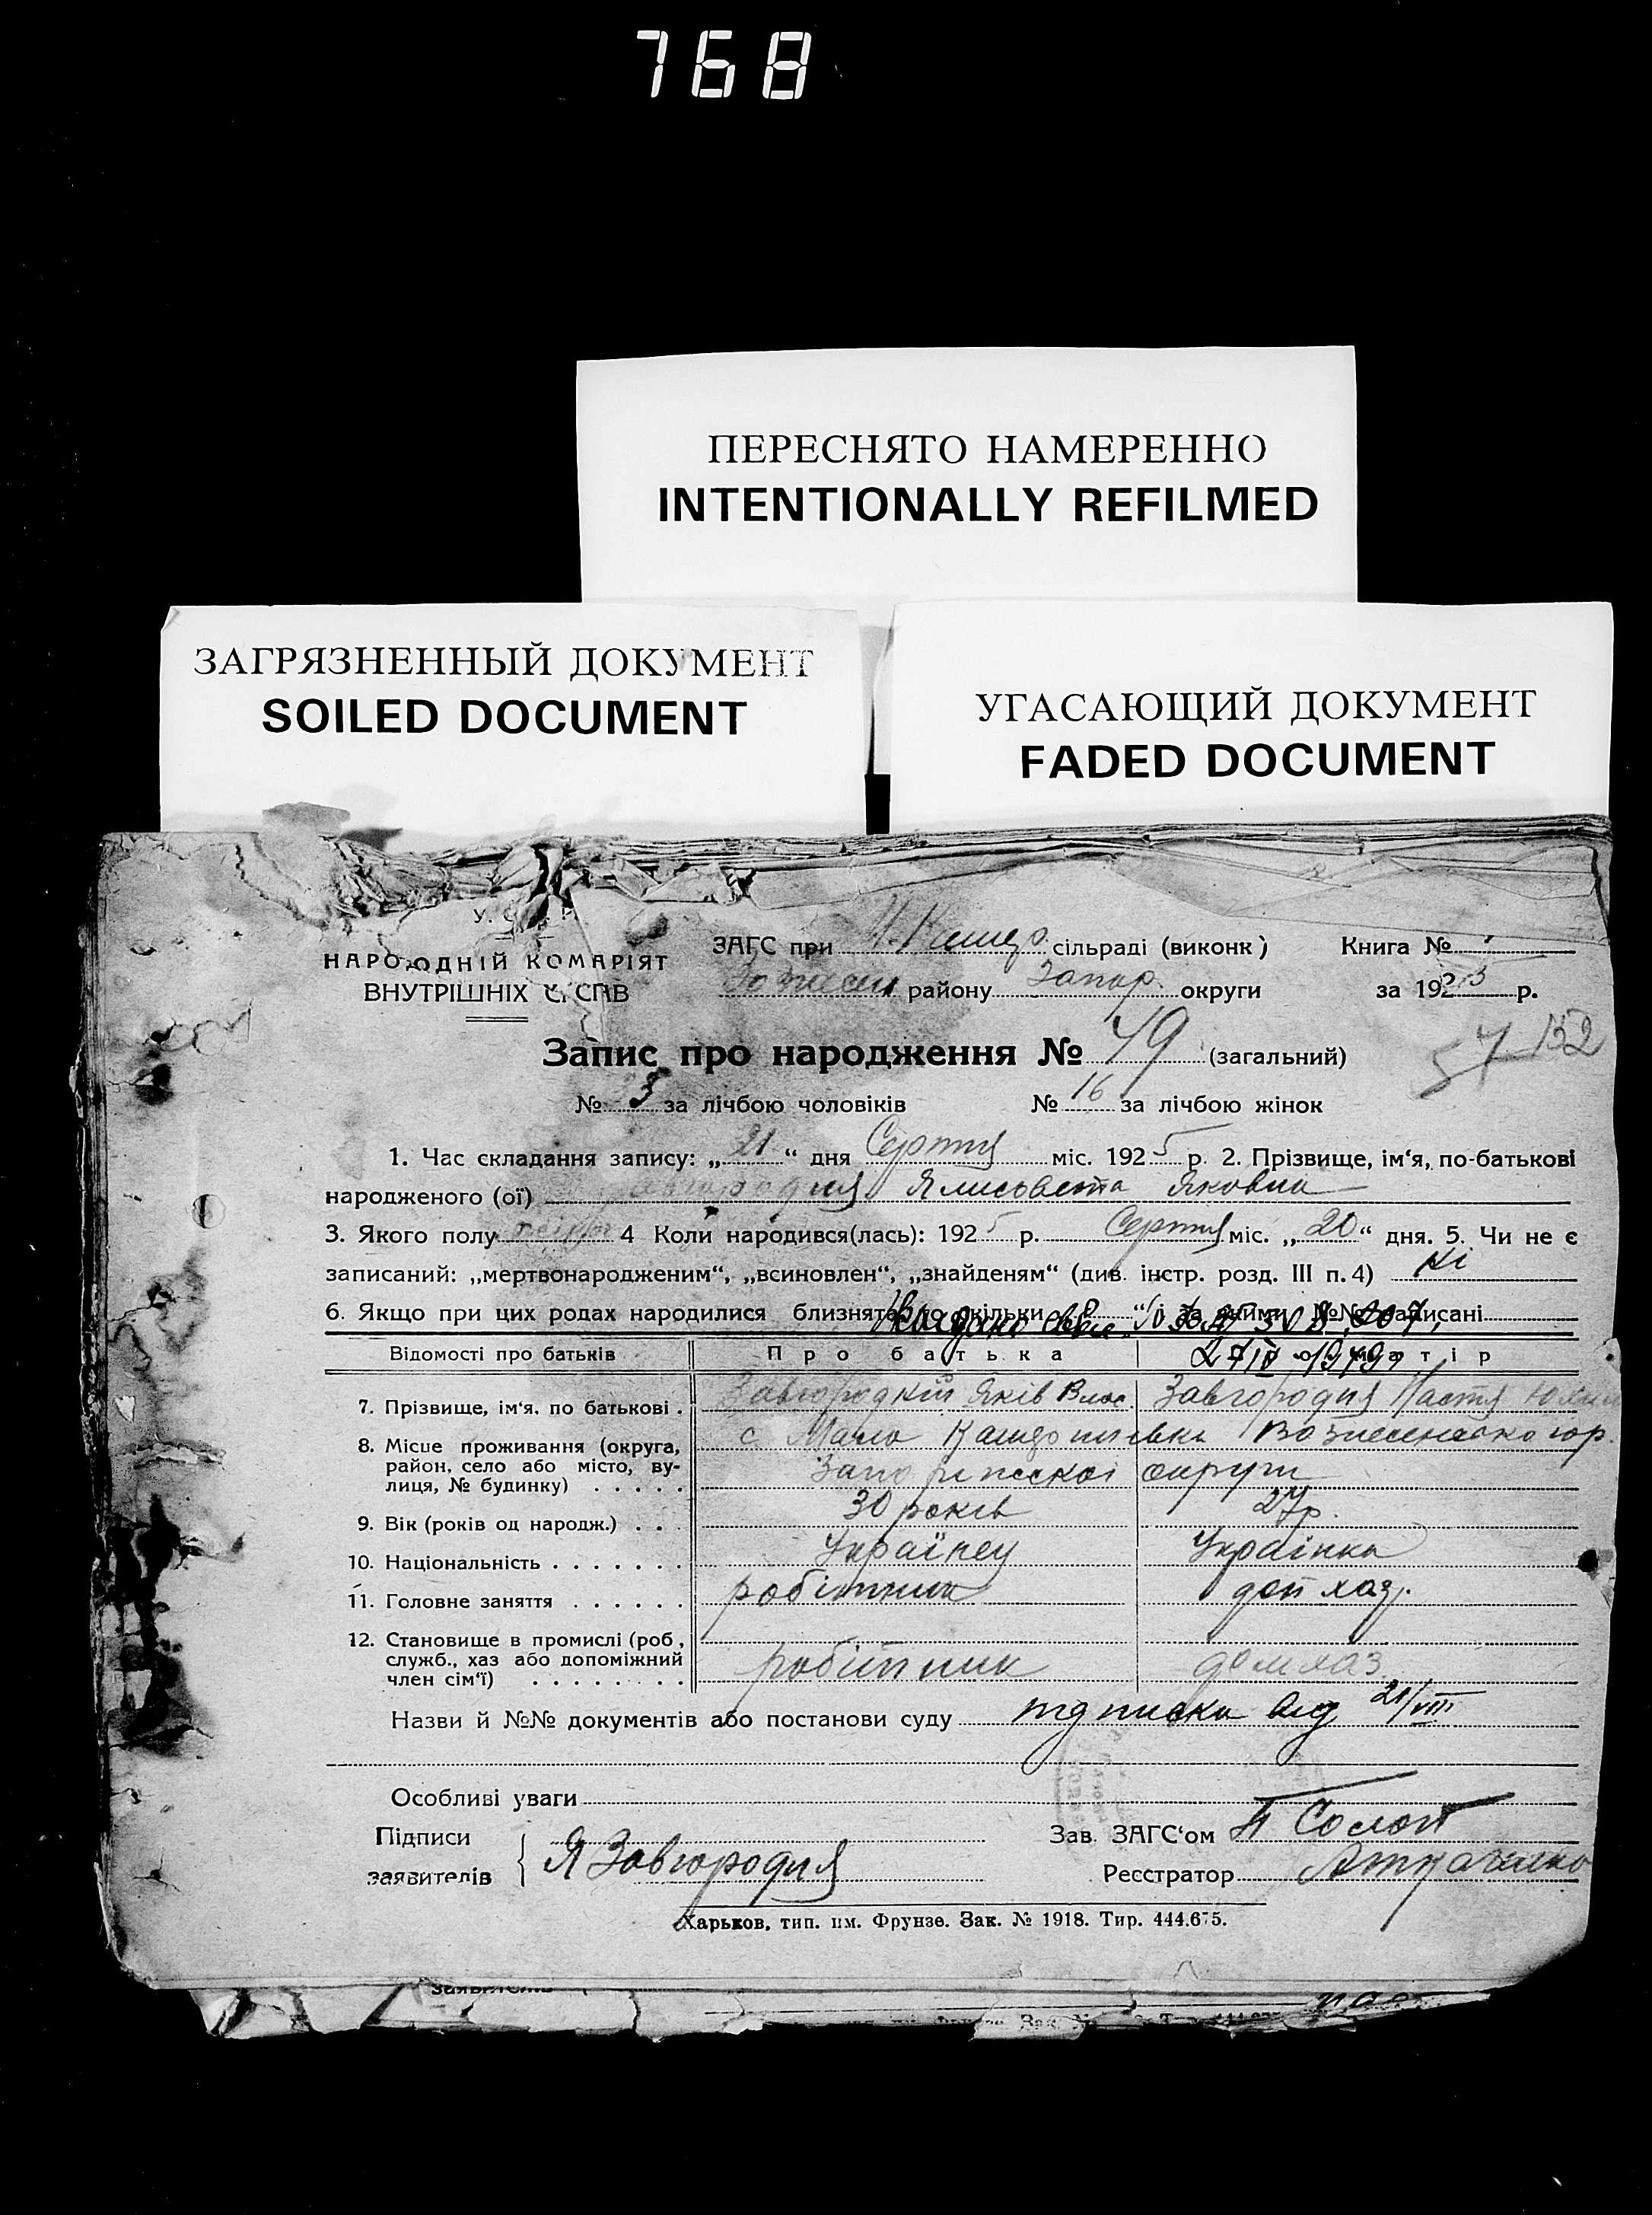 768
ПЕРЕСНЯТО НАМЕРЕННО
INTENTIONALLY REFILMED
ЗАГРЯЗНЕННЫЙ ДОКУМЕНТ
SOILED DOCUMENT
УГАСАЮЩИЙ ДОКУМЕНТ
FADED DOCUMENT
НАРОДНІЙ КОМАРІЯТ
ВНУТРІШНІХ СПРАВ
ЗАГС при сільраді (виконк) Книга №
району Запор. округи за 1925 р.
Запис про народження № 19 (загальний)
57 132
№ 3 за лічбою чоловіків № 16 за лічбою жінок
1. Час складання запису: „21“ дня Серпня міс. 1925 р. 2. Прізвище, ім‘я, по-батькові
народженого (ої) Ялисьвета Яковна
3. Якого полу 4 Коли народився(лась): 1925 р. Серпня міс. „20“ дня. 5. Чи не є
записаний: „мертвонародженим“, „всиновлен“, „знайденям“ (див. інстр. розд. III п. 4) Ні
6. Якщо при цих родах народилися близнята, то скільки і за якими №№ записані
Відомості про батьків Про батька Про матір
7. Прізвище, ім‘я, по батькові . Завгородній Яків Влас. Завгородня Настя
8. Місце проживання (округа, район, село або місто, вулиця, № будинку) . . . . .
с. Мало
Запоріжскої округи
9. Вік (років од народж.) . . . 30 років 27 р.
10. Національність . . . . . . . Українец Українка
11. Головне заняття . . . . . . робітник дом хаз.
12. Становище в промислі (роб, служб., хаз або допоміжний член сім‘ї) . . . . . . . . робітник дом хаз.
Назви й №№ документів або постанови суду підписка від 21/VIII
Особливі уваги
Підписи заявителів Я Завгородня
Зав. ЗАГС‘ом
Реєстратор
Харьков, тип. им. Фрунзе. Зак. № 1918. Тир. 444.675.